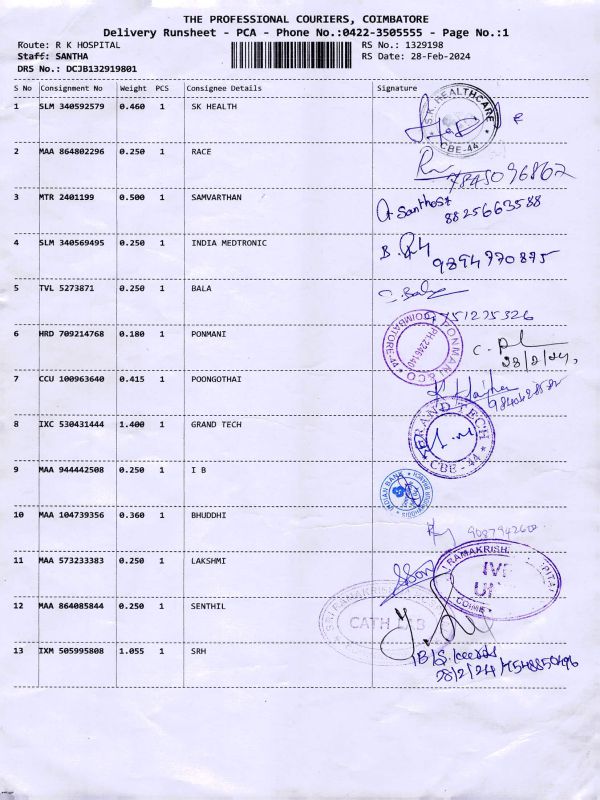 THE PROFESSIONAL COURIERS, COIMBATORE
Delivery Runsheet - PCA - Phone No.:0422-3505555 - Page No.:1
Route: R K HOSPITAL RS No.: 1329198
Staff: SANTHA RS Date: 28-Feb-2024
DRS No.: DCJB132919801
S No Consignment No Weight PCS Consignee Details Signature
1 SLM 340592579 0.460 1 SK HEALTH
S.K. HEALTHCARE CBE-44
2 MAA 864802296 0.250 1 RACE
7845096862
3 MTR 2401199 0.500 1 SAMVARTHAN
A Santhosh
8825663588
4 SLM 340569495 0.250 1 INDIA MEDTRONIC
9894770875
5 TVL 5273871 0.250 1 BALA
9751275326
6 HRD 709214768 0.180 1 PONMANI
PONMANI & CO PH:2246140 COIMBATORE-44
28/2/24
7 CCU 100963640 0.415 1 POONGOTHAI
8 IXC 530431444 1.400 1 GRAND TECH
GRAND TECH CBE - 44
9 MAA 944442508 0.250 1 I B
INDIAN BANK
10 MAA 104739356 0.360 1 BHUDDHI
11 MAA 573233383 0.250 1 LAKSHMI
12 MAA 864085844 0.250 1 SENTHIL
CATH LAB
13 IXM 505995808 1.055 1 SRH
28/2/24 7548850496